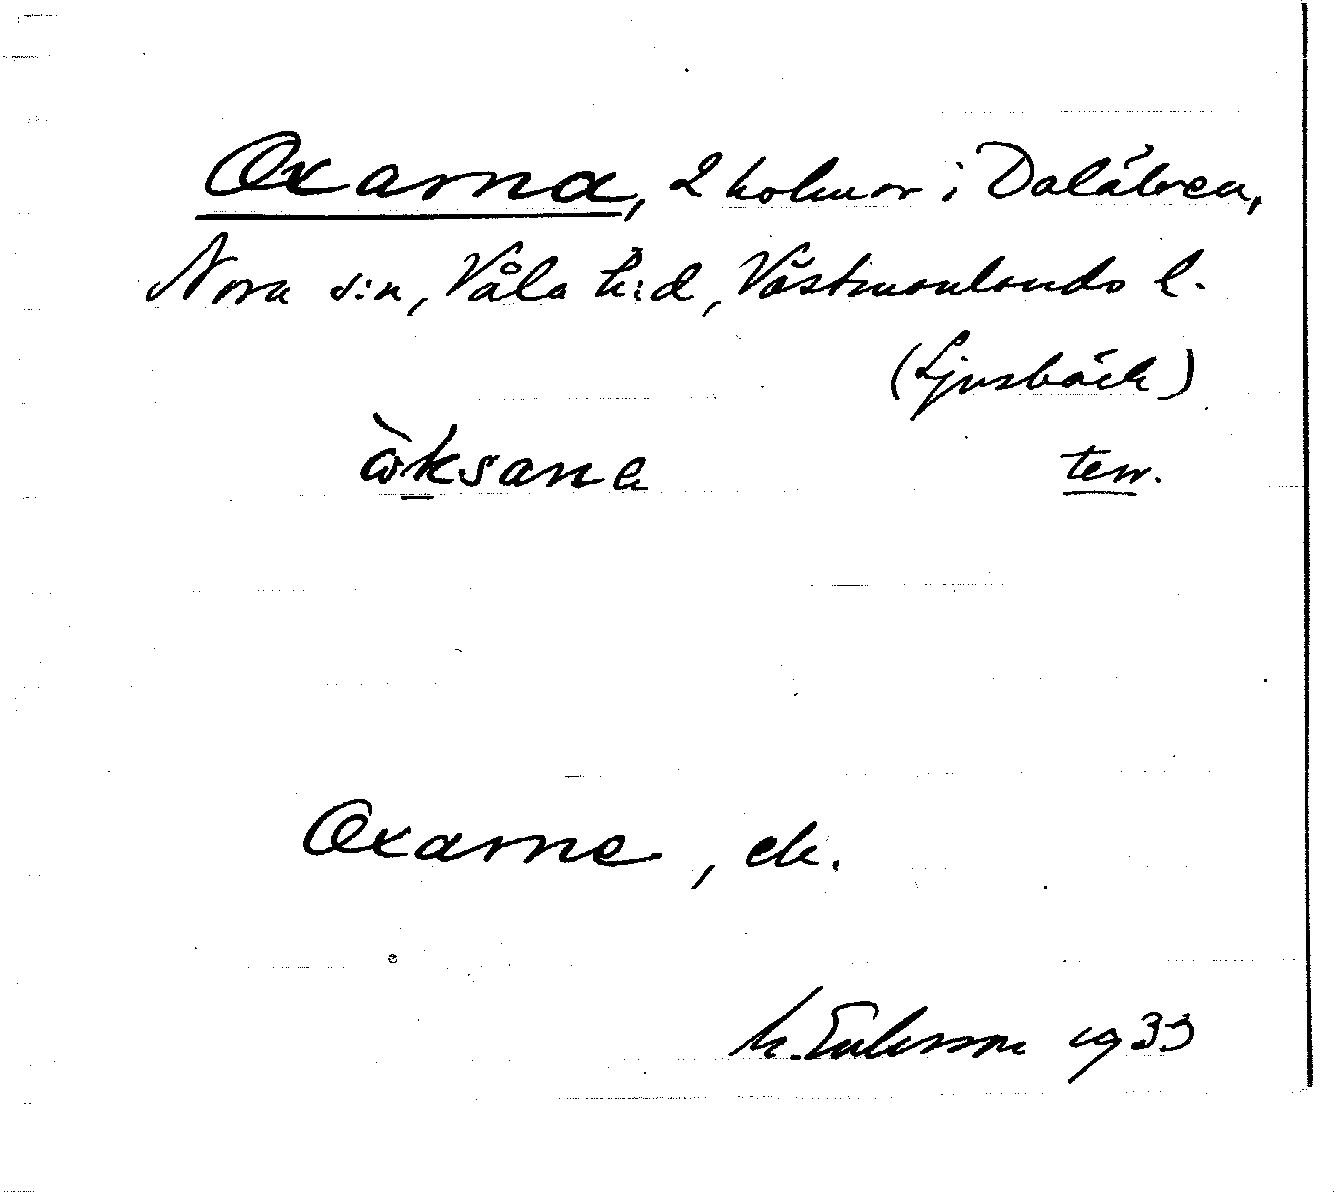 Oxarna, 2 holmar i Dalälven,
Nora s:n, Våla h:d, Västmanlands l.
(Ljusbäck)
ɷ̀ksana terr.
Oxarne, ek.
M. Eriksson 1933